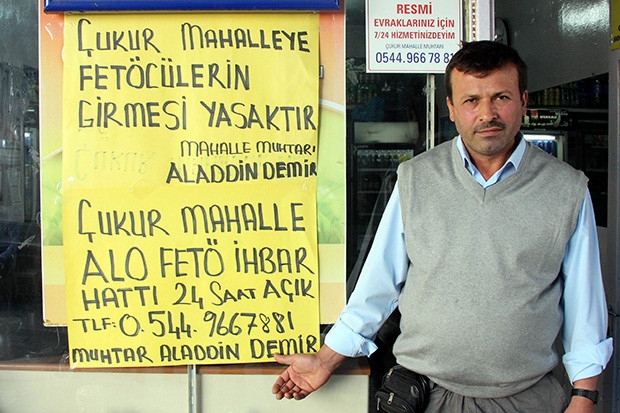 ÇUKUR MAHALLEYE
FETÖCÜLERİN
GİRMESİ YASAKTIR
MAHALLE MUHTARI
ALADDİN DEMİR
ÇUKUR MAHALLE
ALO FETÖ İHBAR
HATTI 24 SAAT AÇIK
TLF: 0.544.9667881
MUHTAR ALADDİN DEMİR
RESMİ
EVRAKLARINIZ İÇİN
7/24 HİZMETİNİZDEYİM
ÇUKUR MAHALLE MUHTARI
0544.966 78 81